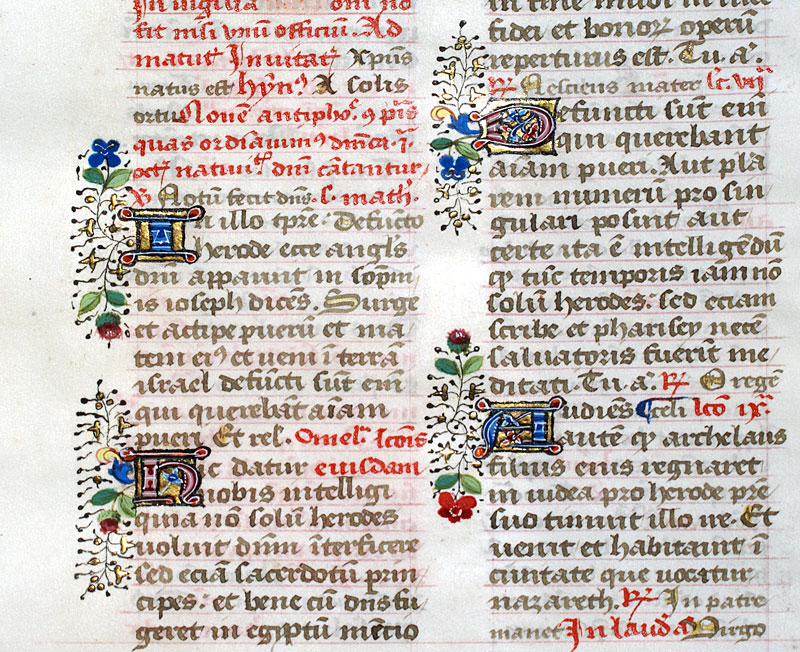 In vigilia oni no
fit nisi vnū officiū. Ad
matut̄ Inuitat̄ xp̄us
natus est hȳn⁹ A solis
ortu Nouē antipho᷒ ꝯ p̄is
quas ordīauim⁹ dn̄ica ī
oct̄ natiuit̄ dn̄i cātantur
℣ Notū fecit dn̄s. S. math̄.
In illo tp̄re. Defuncto
herode ecce angl̄s
dn̄i apparuit in sōpni
is ioseph dicēs. Surge
et accipe puerū et ma
tem ei⁹ et veni ī terrā
israel defūcti sūt eni᷒
qui querebāt aīam
pueri. Et rel. Omel᷒. lc̄ons
Hic datur eiusdam
nobis intelligi
quia nō solū herodes
voluit dn̄m īterficere
sed eciā sacerdotū prin
cipes. et bene cū dn̄s fu
geret in egiptū mēcio
fidei et bonoꝝ operū
reperturus est. Tu. a᷒.
℟ Nesciens mater lc̄. vij᷒
Defuncti sūt eni᷒
qui querebant
aīam pueri. Aut plu
rem numerū pro sin
gulari posuit aut
certe ita ē intelligēdū
qꝫ tūc temporis iam nō
solū herodes. sed eciam
scribe et pharisey necē
saluatoris fuerūt me
ditati. Tu. a᷒. ℟ O regē
Audiēs celi lc̄o ix᷒
autē qꝫ archelaus
filius eius regnaret
in iudea pro herode pr̄e
suo timuit illo ire. Et
venit et habitauit ī
ciuitate que vocatur
nazareth. ℟ In patre
manet In laud᷒ a᷒ Virgo